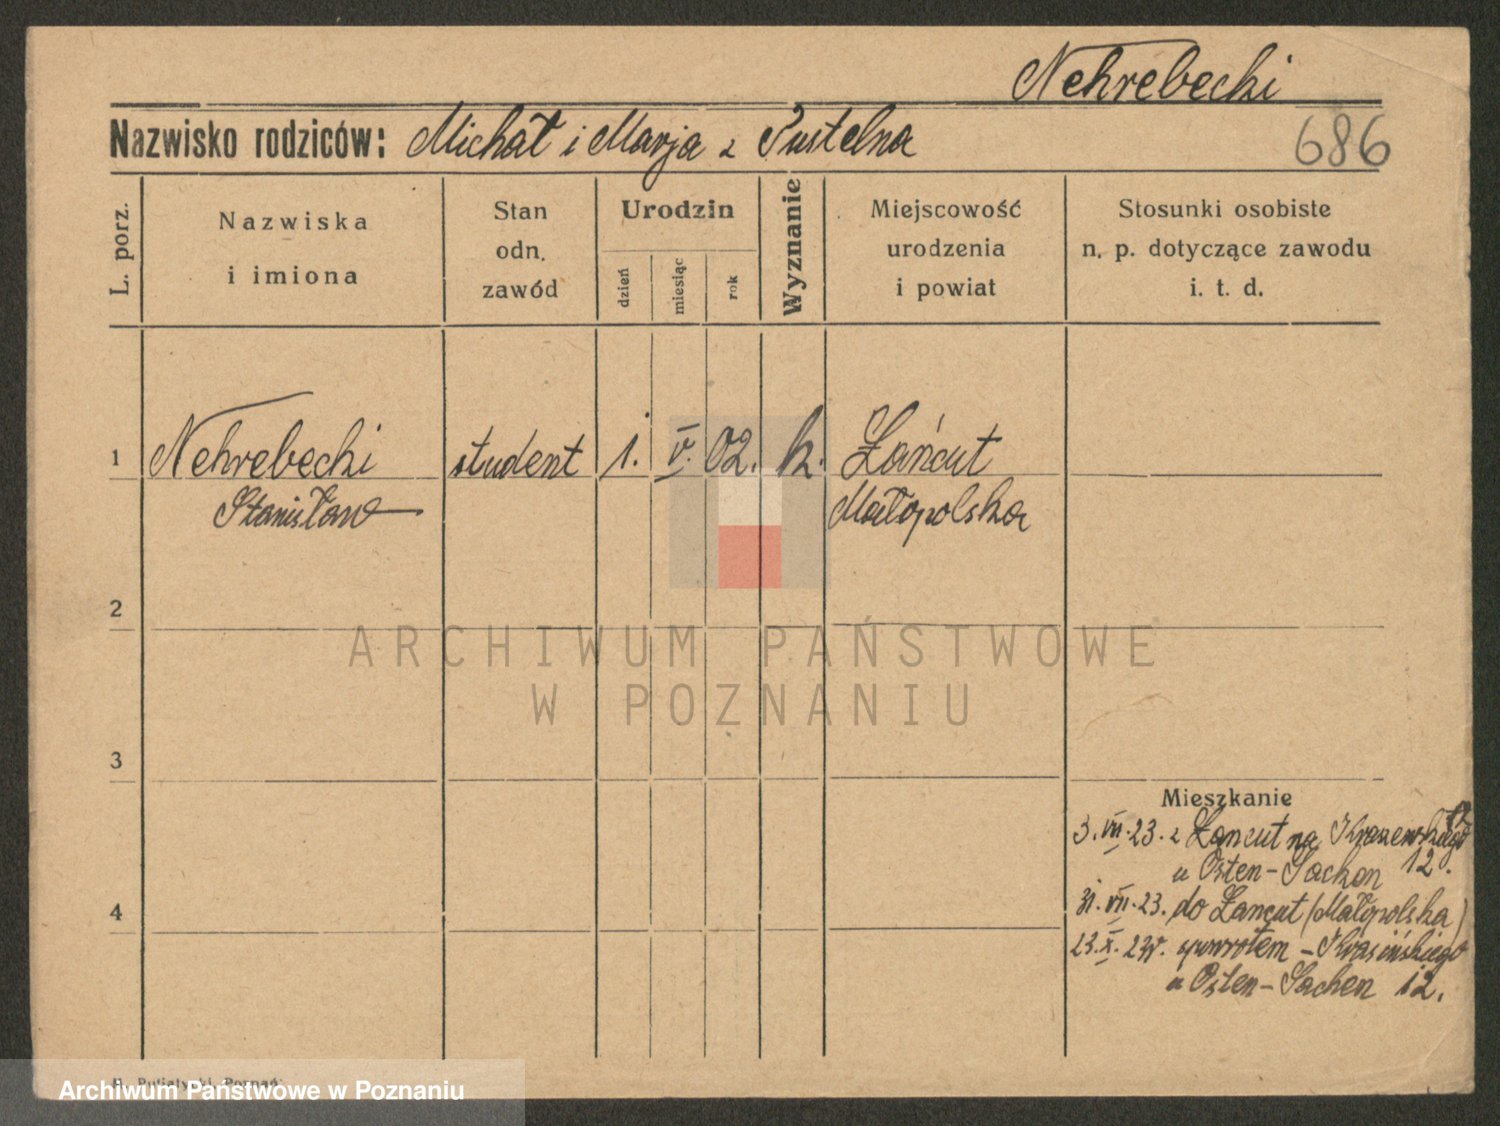 Nehrebecki
Nazwisko rodziców: Michał i Marja z Pustelna
686
L. porz.
Nazwiska
i imiona
Stan
odn.
zawód
Urodzin
dzień
miesiąc
rok
Wyznanie
Miejscowość
urodzenia
i powiat
Stosunki osobiste
n. p. dotyczące zawodu
i. t. d.
1 Nehrebecki student 1. V. 02. k. Łańcut
Stanisław Małopolska
2
3
4
Mieszkanie
3.VII.23. z Łancut na Kraszewskiego
u Osten-Sacken 12.
31.VII.23. do Łancut (Małopolska)
23.X.23r. spowrotem - Krasińskiego
u Osten-Sacken 12.
ARCHIWUM PAŃSTWOWE
W POZNANIU
Poznań
Archiwum Państwowe w Poznaniu